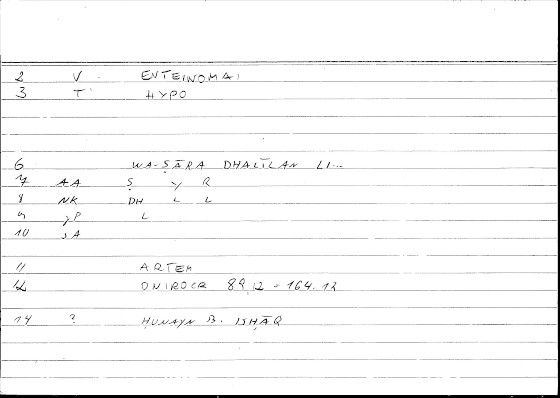 2 V. ENTEINOMAI
3 T' HYPO
6 WA-ṢĀRA DHALĪLAN LI...
7 AA Ṣ Y R
8 NK DH L L
9 ,P L
10 ,A
11 ARTEM
12 ONIROCR 89,12 = 164.12
14 ? ḤUNAYN B. ISḤĀQ